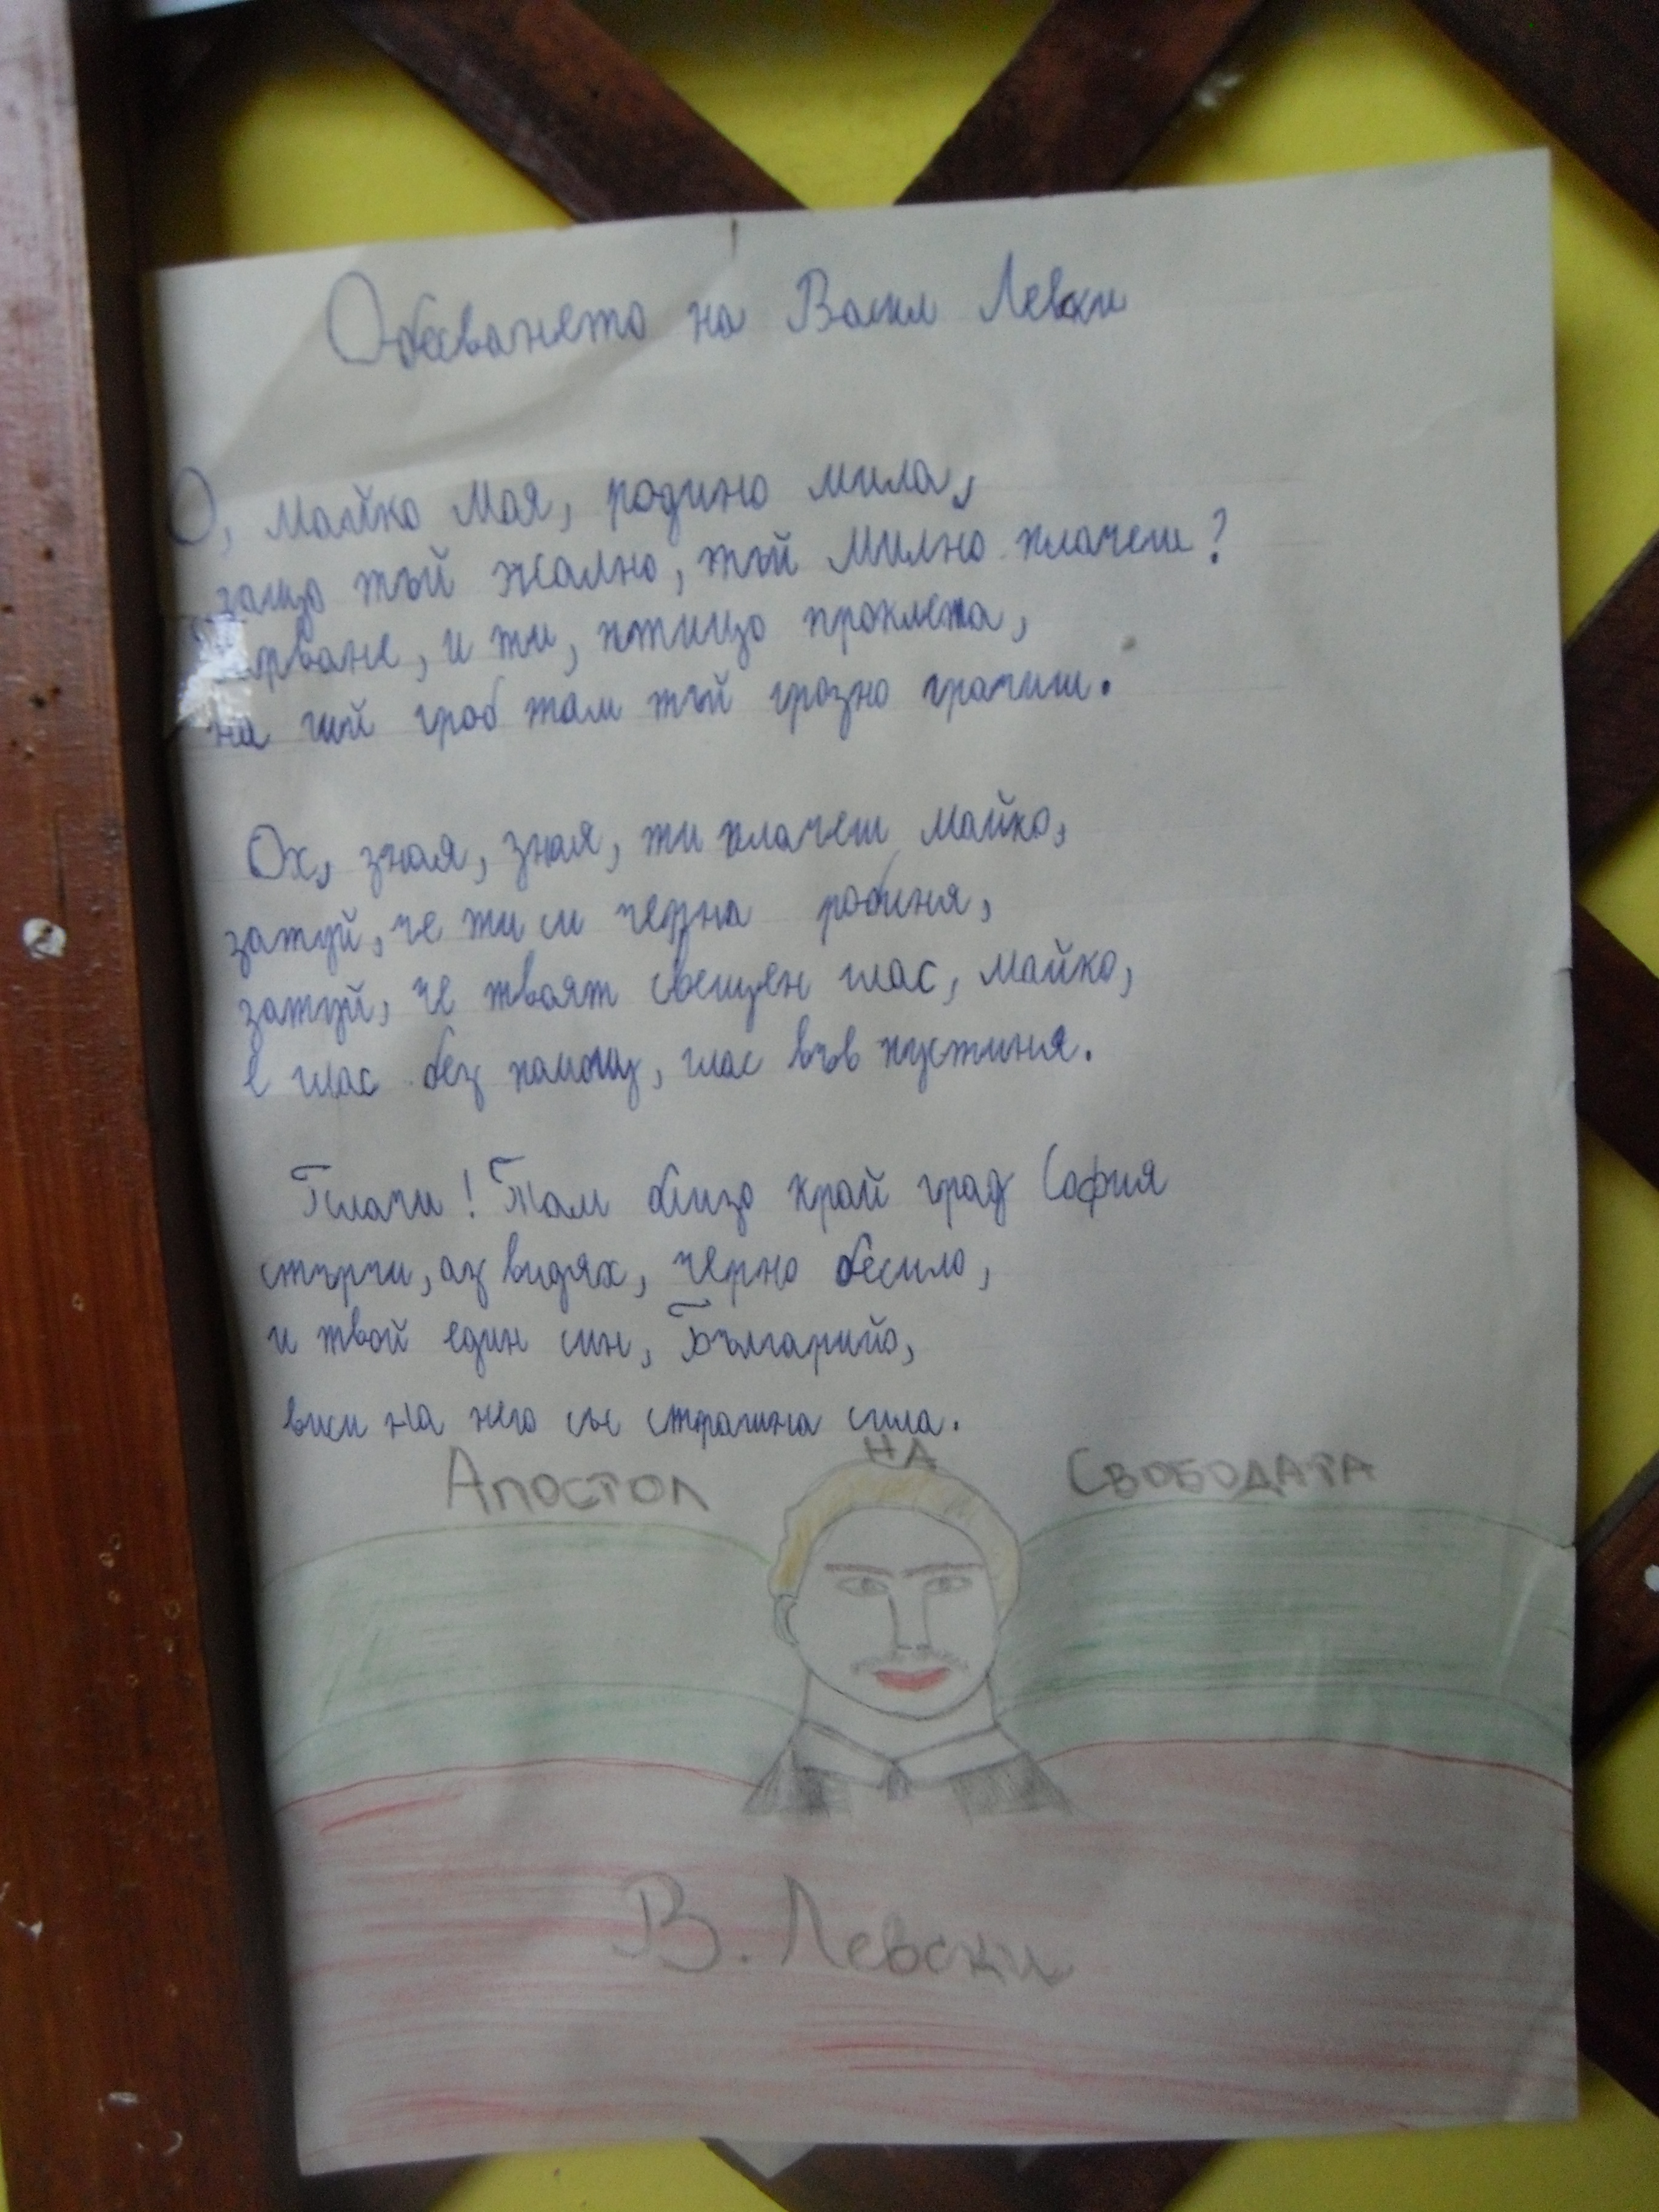 Обесването на Васил Левски
О, майко моя, родино мила,
защо тъй жално, тъй милно плачеш?
Гарване, и ти, птицо проклета,
на чий гроб там тъй грозно грачиш.
Ох, зная, зная, ти плачеш майко,
затуй, че ти си черна робиня,
затуй, че твоят свещен глас, майко,
е глас без помощ, глас във пустиня.
Плачи! Там близо край град София
стърчи, аз видях, черно бесило,
и твой един син, Българийо,
виси на него със страшна сила.
Апостол на Свободата
В. Левски